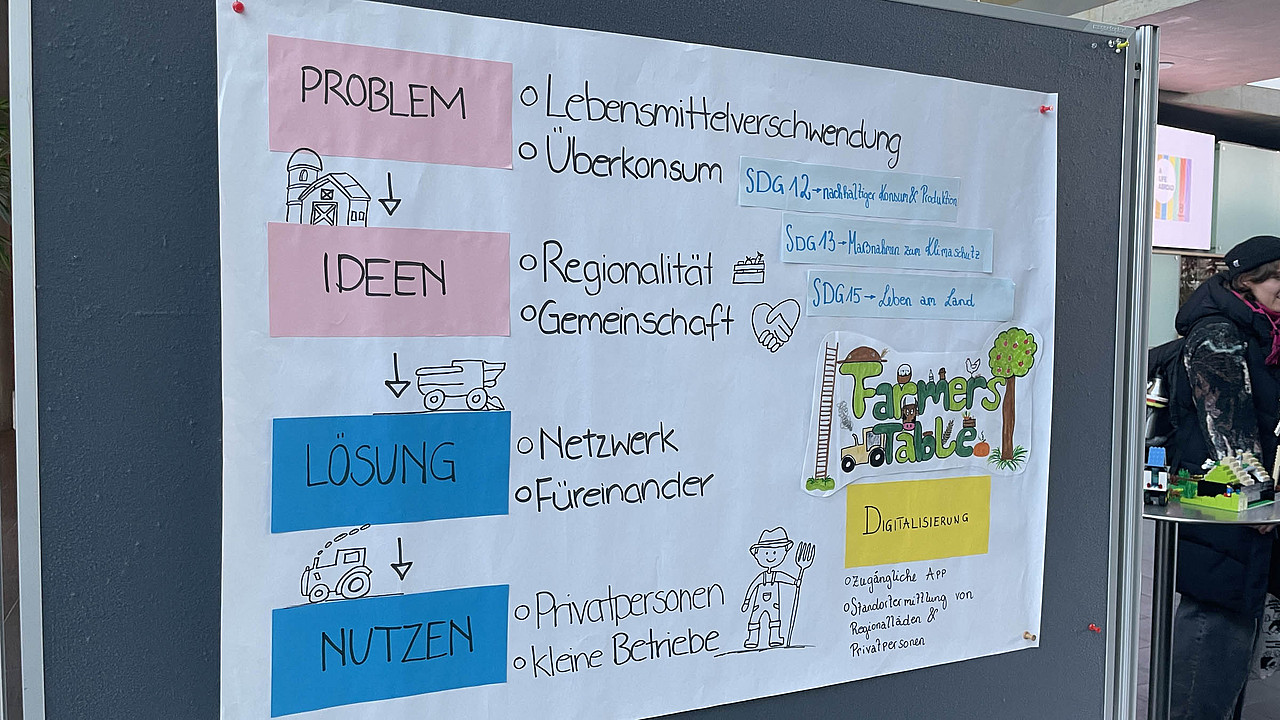 PROBLEM
o Lebensmittelverschwendung
o Überkonsum
SDG 12→nachhaltiger Konsum & Produktion
SDG 13→Maßnahmen zum Klimaschutz
SDG15→Leben am Land
IDEEN
o Regionalität
o Gemeinschaft
Farmers
Table
LÖSUNG
o Netzwerk
o Füreinander
DIGITALISIERUNG
o Zugängliche App
o Standortermittlung von
Regionalläden &
Privatpersonen
NUTZEN
o Privatpersonen
o kleine Betriebe